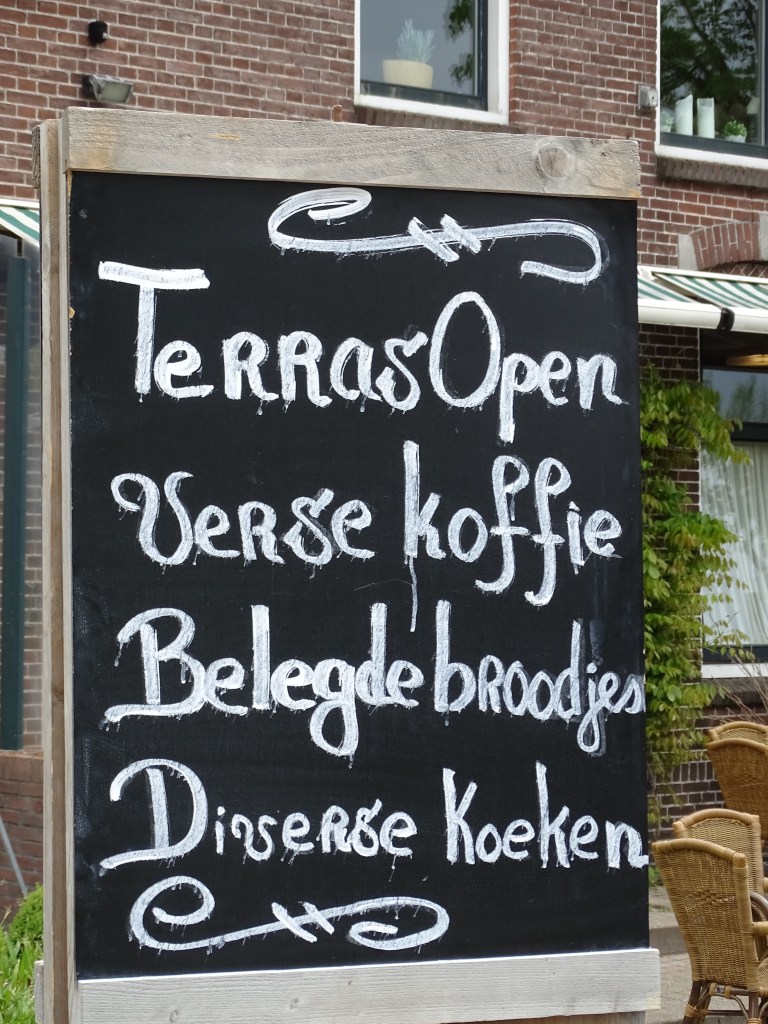 Terras Open
Verse koffie
Belegde broodjes
Diverse Koeken